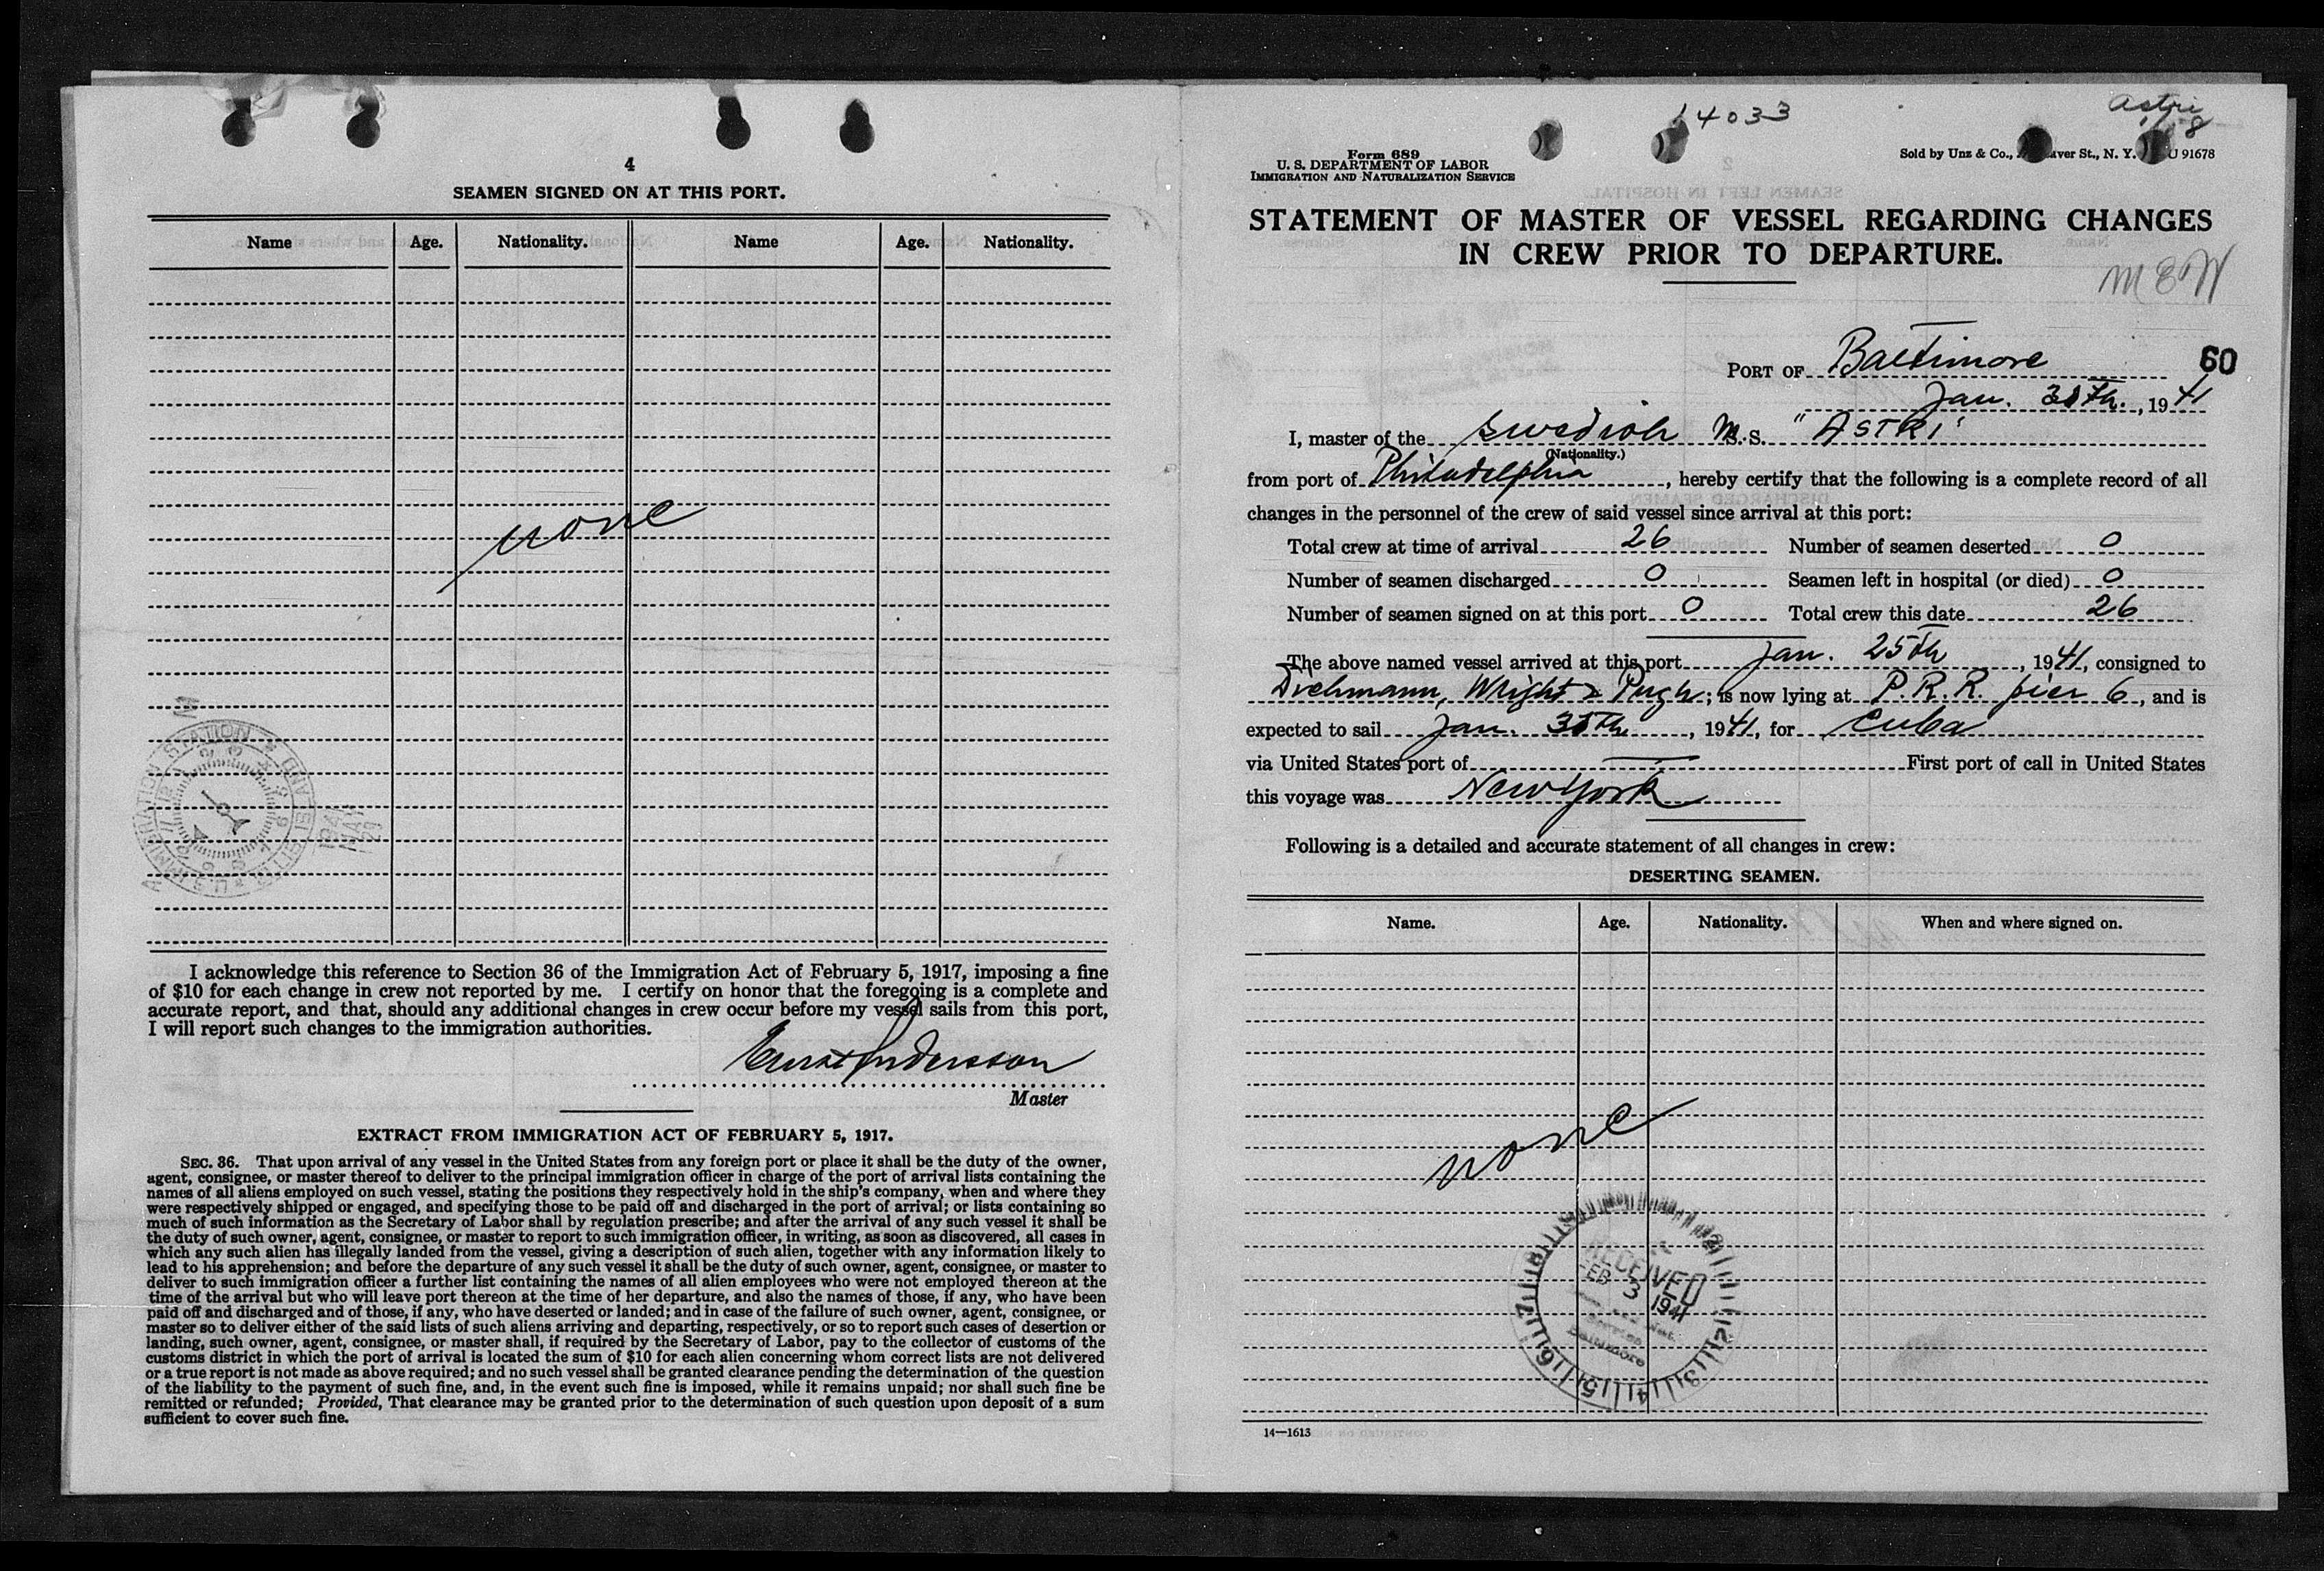 4
SEAMEN SIGNED ON AT THIS PORT.
Name Age. Nationality. Name Age. Nationality.
none
I acknowledge this reference to Section 36 of the Immigration Act of February 5, 1917, imposing a fine
of $10 for each change in crew not reported by me. I certify on honor that the foregoing is a complete and
accurate report, and that, should any additional changes in crew occur before my vessel sails from this port,
I will report such changes to the immigration authorities.
Andersson
Master
EXTRACT FROM IMMIGRATION ACT OF FEBRUARY 5, 1917.
SEC. 36. That upon arrival of any vessel in the United States from any foreign port or place it shall be the duty of the owner,
agent, consignee, or master thereof to deliver to the principal immigration officer in charge of the port of arrival lists containing the
names of all aliens employed on such vessel, stating the positions they respectively hold in the ship's company, when and where they
were respectively shipped or engaged, and specifying those to be paid off and discharged in the port of arrival; or lists containing so
much of such information as the Secretary of Labor shall by regulation prescribe; and after the arrival of any such vessel it shall be
the duty of such owner, agent, consignee, or master to report to such immigration officer, in writing, as soon as discovered, all cases in
which any such alien has illegally landed from the vessel, giving a description of such alien, together with any information likely to
lead to his apprehension; and before the departure of any such vessel it shall be the duty of such owner, agent, consignee, or master to
deliver to such immigration officer a further list containing the names of all alien employees who were not employed thereon at the
time of the arrival but who will leave port thereon at the time of her departure, and also the names of those, if any, who have been
paid off and discharged and of those, if any, who have deserted or landed; and in case of the failure of such owner, agent, consignee, or
master so to deliver either of the said lists of such aliens arriving and departing, respectively, or so to report such cases of desertion or
landing, such owner, agent, consignee, or master shall, if required by the Secretary of Labor, pay to the collector of customs of the
customs district in which the port of arrival is located the sum of $10 for each alien concerning whom correct lists are not delivered
or a true report is not made as above required; and no such vessel shall be granted clearance pending the determination of the question
of the liability to the payment of such fine, and, in the event such fine is imposed, while it remains unpaid; nor shall such fine be
remitted or refunded; Provided, That clearance may be granted prior to the determination of such question upon deposit of a sum
sufficient to cover such fine.
14033
Astri
8
Form 689
U. S. DEPARTMENT OF LABOR
IMMIGRATION AND NATURALIZATION SERVICE
Sold by Unz & Co., St., N. Y. U 91678
STATEMENT OF MASTER OF VESSEL REGARDING CHANGES
IN CREW PRIOR TO DEPARTURE.
MEW
PORT OF Baltimore 60
Jan. , 1941
I, master of the Swedish M.S. "ASTRI"
(Nationality.)
from port of Philadelphia, hereby certify that the following is a complete record of all
changes in the personnel of the crew of said vessel since arrival at this port:
Total crew at time of arrival 26 Number of seamen deserted 0
Number of seamen discharged 0 Seamen left in hospital (or died) 0
Number of seamen signed on at this port 0 Total crew this date 26
The above named vessel arrived at this port Jan. 25th, 1941, consigned to
Dichmann, Wright & Pugh; is now lying at P.R.R. pier 6, and is
expected to sail Jan. , 1941, for Cuba
via United States port of — First port of call in United States
this voyage was New York
Following is a detailed and accurate statement of all changes in crew:
DESERTING SEAMEN.
Name. Age. Nationality. When and where signed on.
none
RECEIVED
FEB 3 1941
Service
Baltimore
14—1613